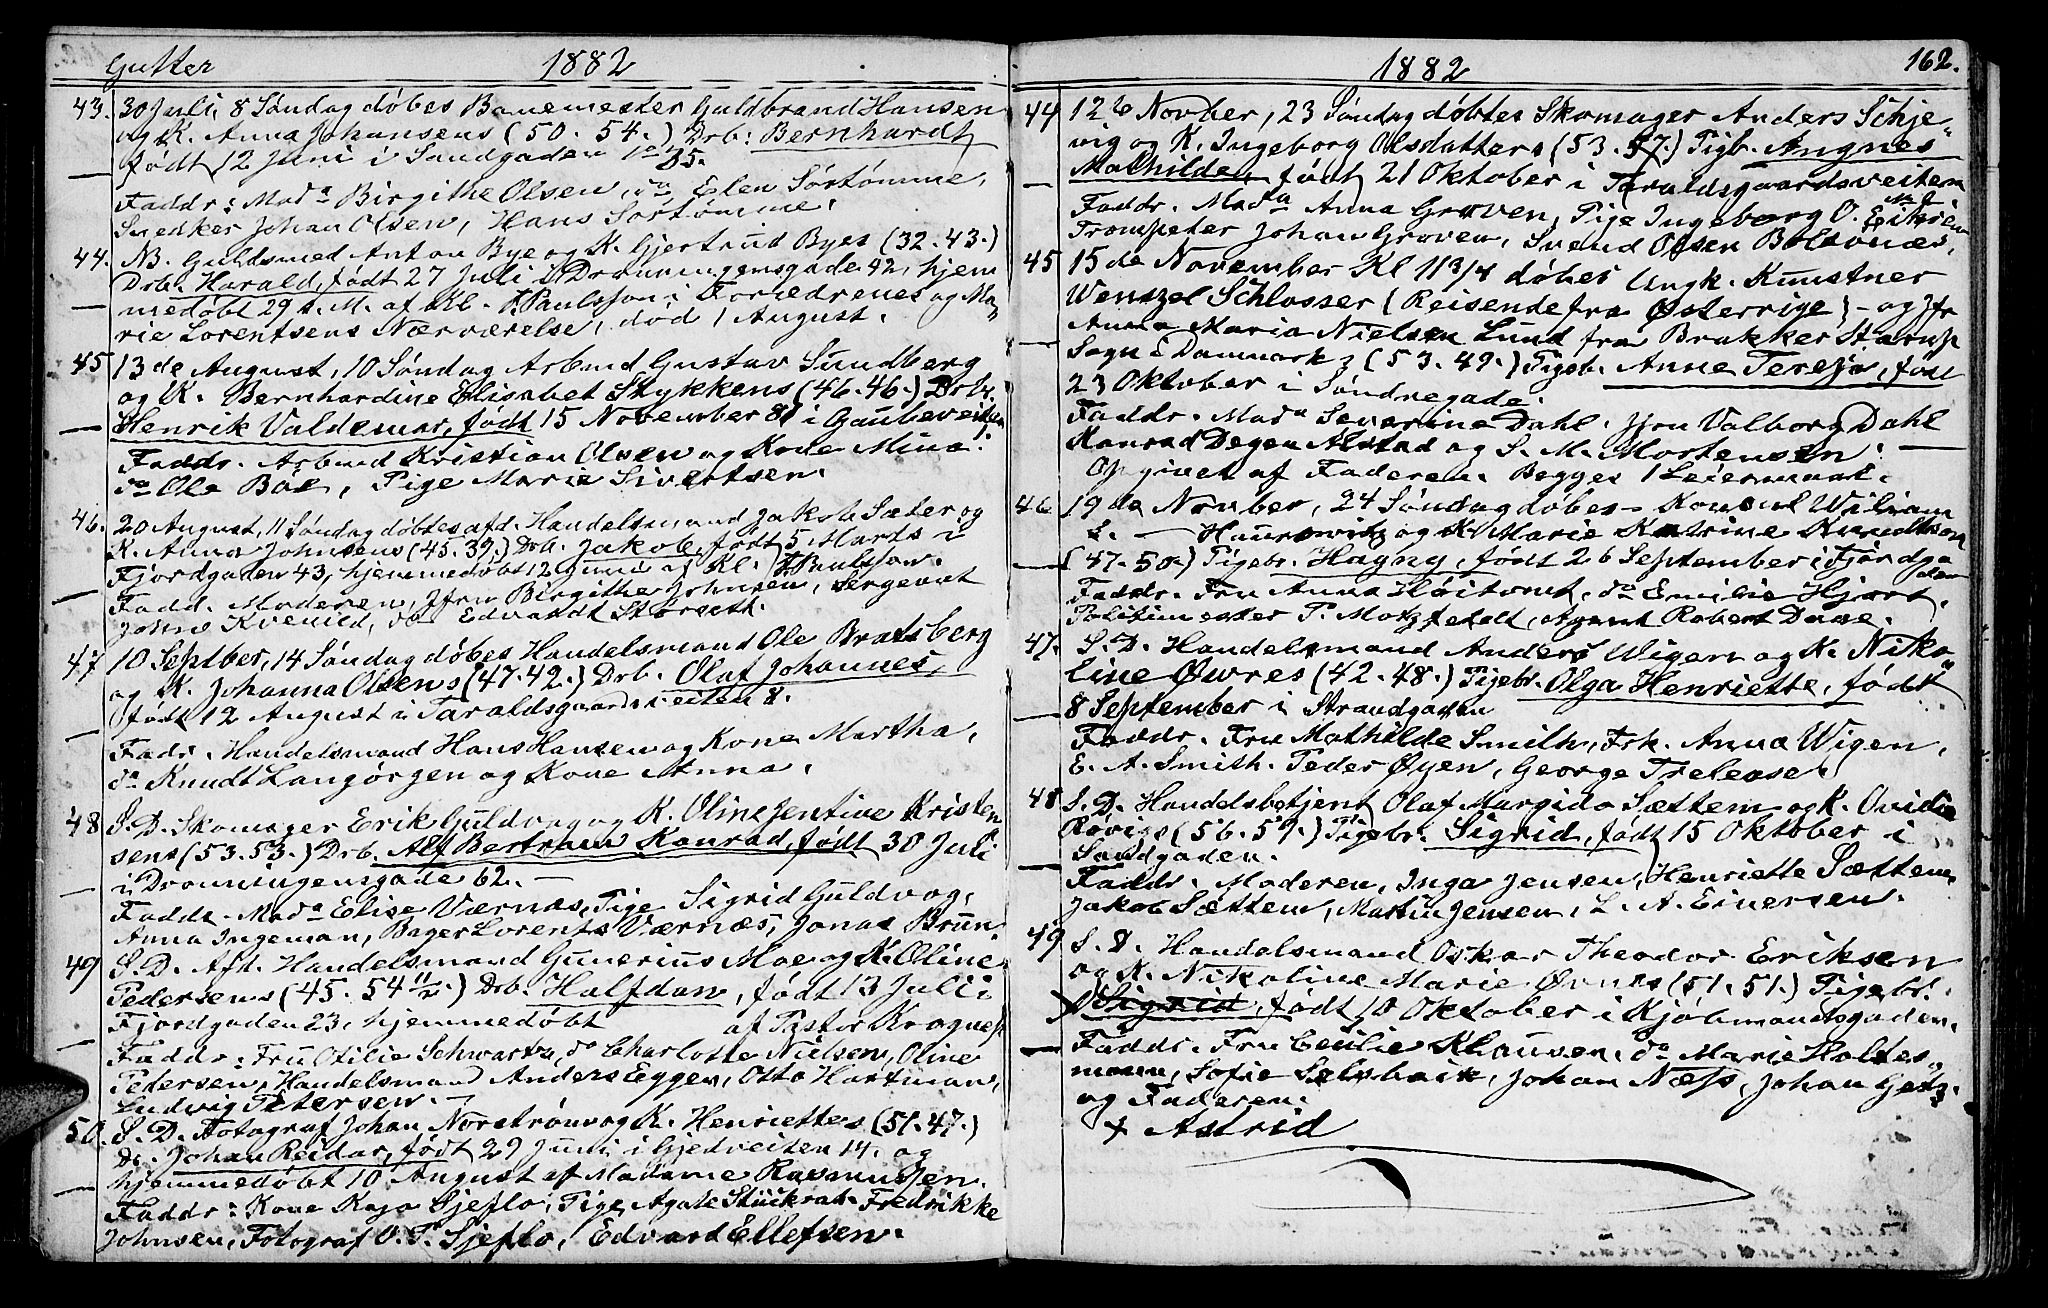 Gutter 1882
43. 30 Juli, 8 Søndag døbes Banemester Guldbrand Hansen
og K. Anna Johansens (50. 54.) Drb: Bernhardt
født 12 Juni i Sandgaden 35.
Faddr: Mad. Birgithe Olsen, do Elen Sørtømme,
Snedker Johan Olsen, Hans Sørtømme.
44. NB. Guldsmed Anton Bye og K. Gjertrud Byes (32. 43.)
Drb. Harald, født 27 Juli i Dronningensgade 42, hjem
medøbt 29 s. M. af Kl. F. Paulsson i Forældrenes og Ma„
rie Lorentsens Nærværelse, død 1 August.
45 13de August, 10 Søndag Arbmd Gustav Sundberg
og K. Bernhardine Elisabet Stykkens (46. 46.) Drb.
Henrik Valdemar, født 15 November 81 i Gaubeveiten
Faddr. Arbmd Kristian Olsen og Kone Mina.
do Ole Boe, Pige Marie Sivertsen.
46. 20 August, 11 Søndag døbtes afd. Handelsmand Jakob Sæter og
K. Anna Johnsens (45. 39.) Drb. Jakob, født 5 Marts i
Fjordgaden 43, hjemmedøbt 12 Juni af Kl. F. Paulsson.
Fadd. Moderen, Jfru Birgithe Johnsen, Sergeant
Johns Kvenild, do Edvardt Størseth.
47 10 Septber, 14 Søndag døbes Handelsmand Ole Bratsberg
og K. Johanna Olsens (47. 42.) Drb. Olaf Johannes,
født 12 August i Taraldsgaardsveiten 8.
Faddr. Handelsmand Hans Hansen og Kone Martha,
do Knudt Langørgen og Kone Anna.
48 S. D. Skomager Erik Guldvog og K. Oline Jentine Kristen
sens (53. 53.) Drb. Alf Bertram Konrad, født 30 Juli
i Dronningensgade 62.
Faddr. Mad. Elise Værnæs, Pige Sigrid Guldvog,
Anna Ingeman, Bager Lorents Værnæs, Jonas Brun.
49 S. D. Afh. Handelsmand Gunerius Moe og K. Oline
Pedersens (45. 54 11/2.) Drb. Halfdan, født 13 Juli i
Fjordgaden 23, hjemmedøbt af Pastor Krogness
Faddr: Fru Otilie Schwartz, do Charlotte Nielsen, Oline
Pedersen, Handelsmand Anders Eggen, Otto Hartman,
Ludvig Petersen.
50. S. D. Fotograf Johan Norstrøm og K. Henriettes (51. 47.)
Dr. Johan Reidar, født 29 Juni i Gjedveiten 14. og
hjemmedøbt 10 August af Madame Rasmussen.
Faddr: Kone Kaja Sjeflo, Pige Agate Stückrat. Fredrikke
Johnsen, Fotograf O. T. Sjeflo, Edvard Ellefsen.
1882 162.
44 12te Novber, 23 Søndag døbtes Skomager Anders Schje„
vig og K. Ingeborg Olsdatters (53. 57.) Pigb. Angnes
Mathilde, født 21 Oktober i Taraldsgaardsveiten
No 2
Faddr. Mada Anna Groven, Pige Ingeborg O. Eikrem
Trompeter Johan Groven, Svend Olsen Bolsønæs,
45 15de November Kl 11 3/4 døbes Ungk. Kunstner
Wenszel Schlosser (Reisende fra Østerrige) - og Jfr
Anna Maria Nielsen Lund fra Brakker Starup
Sogn i Danmark (53. 49.) Pigeb. Anne Teresja, født
23 Oktober i Søndregade.
Faddr. Mada Severine Dahl. Jfru Valborg Dahl
Konrad Degen Alstad og S. M. Mortensen.
Opgivet af Faderen. Begges 1 Leiermaal.
46 19de Novber, 24 Søndag døbes - Konsul Wiliam
L. - Haurowitz og K. Marie Katrine Knudtson
(47. 50.) Pigebr. Hagny, født 26 September i Fjordga
den
Faddr. Fru Anna Høitomt, do Emilie Hjort,
Politimester P. Motzfeldt, Agent Robert Dave.
47. S. D. Handelsmand Anders Wigen og K. Niko„
line Øwres (42. 48.) Pigebr. Olga Henriette, født
8 September i Strandgaden
Faddr. Fru Mathilde Smith, Frk. Anna Wigen,
E. A. Smith. Peder Øyen, George Trelease.
48 S. D. Handelsbetjent Olaf Margido Sættem og K. Ovidia
Røvigs (56. 59.) Pigebr. Sigrid, født 15 Oktober i
Sandgaden.
Faddr. Moderen, Inga Jensen, Henriette Sættem,
Jakob Sættem, Martin Jensen, L. A. Einersen.
49 S. D. Handelsmand Oskar Theodor Eriksen
og K. Nikoline Marie Øvres (51. 51.) Pigebr.
Sigrid, født 10 Oktober i Kjøbmandsgaden.
Faddr. Fru Cecilie Klausen, do Marie Holtes„
mann, Sofie Salsbaik, Johan Næss, Johan Getz
og Faderen.
+ Astrid